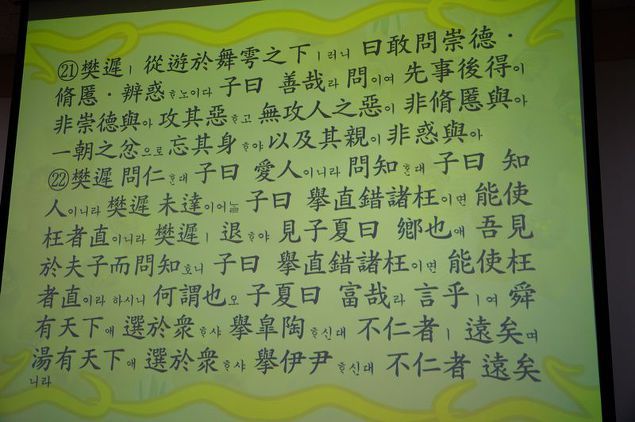 ㉑樊遲ㅣ 從遊於舞雩之下ㅣ러니 曰敢問崇德・
脩慝・辨惑ᄒᆞ노이다 子曰 善哉라 問이여 先事後得이
非崇德與아 攻其惡ᄒᆞ고 無攻人之惡이 非脩慝與아
一朝之忿으로 忘其身ᄒᆞ야 以及其親이 非惑與아
㉒樊遲 問仁ᄒᆞᆫ대 子曰 愛人이니라 問知ᄒᆞᆫ대 子曰 知
人이니라 樊遲 未達이어늘 子曰 擧直錯諸枉이면 能使
枉者直이니라 樊遲ㅣ 退ᄒᆞ야 見子夏曰 鄕也애 吾見
於夫子而問知호니 子曰 擧直錯諸枉이면 能使枉
者直이라 하시니 何謂也오 子夏曰 富哉라 言乎ㅣ여 舜
有天下애 選於衆ᄒᆞ샤 擧皐陶ᄒᆞ신대 不仁者ㅣ 遠矣며
湯有天下애 選於衆ᄒᆞ샤 擧伊尹ᄒᆞ신대 不仁者 遠矣
니라